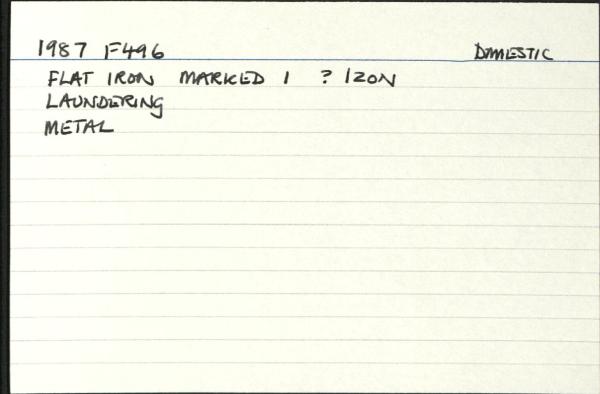 1987 F496 DOMESTIC
FLAT IRON MARKED 1 ? IZON
LAUNDERING
METAL